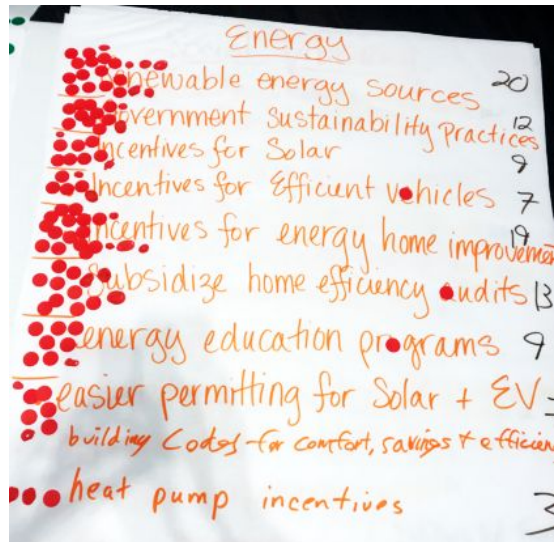 Energy
Renewable energy sources 20
Government sustainability practices 12
Incentives for Solar 9
Incentives for Efficient vehicles 7
Incentives for energy home improvemen 19
Subsidize home efficiency audits 13
energy education programs 9
easier permitting for Solar + EV
building Codes for comfort, savings + efficien
heat pump incentives 3